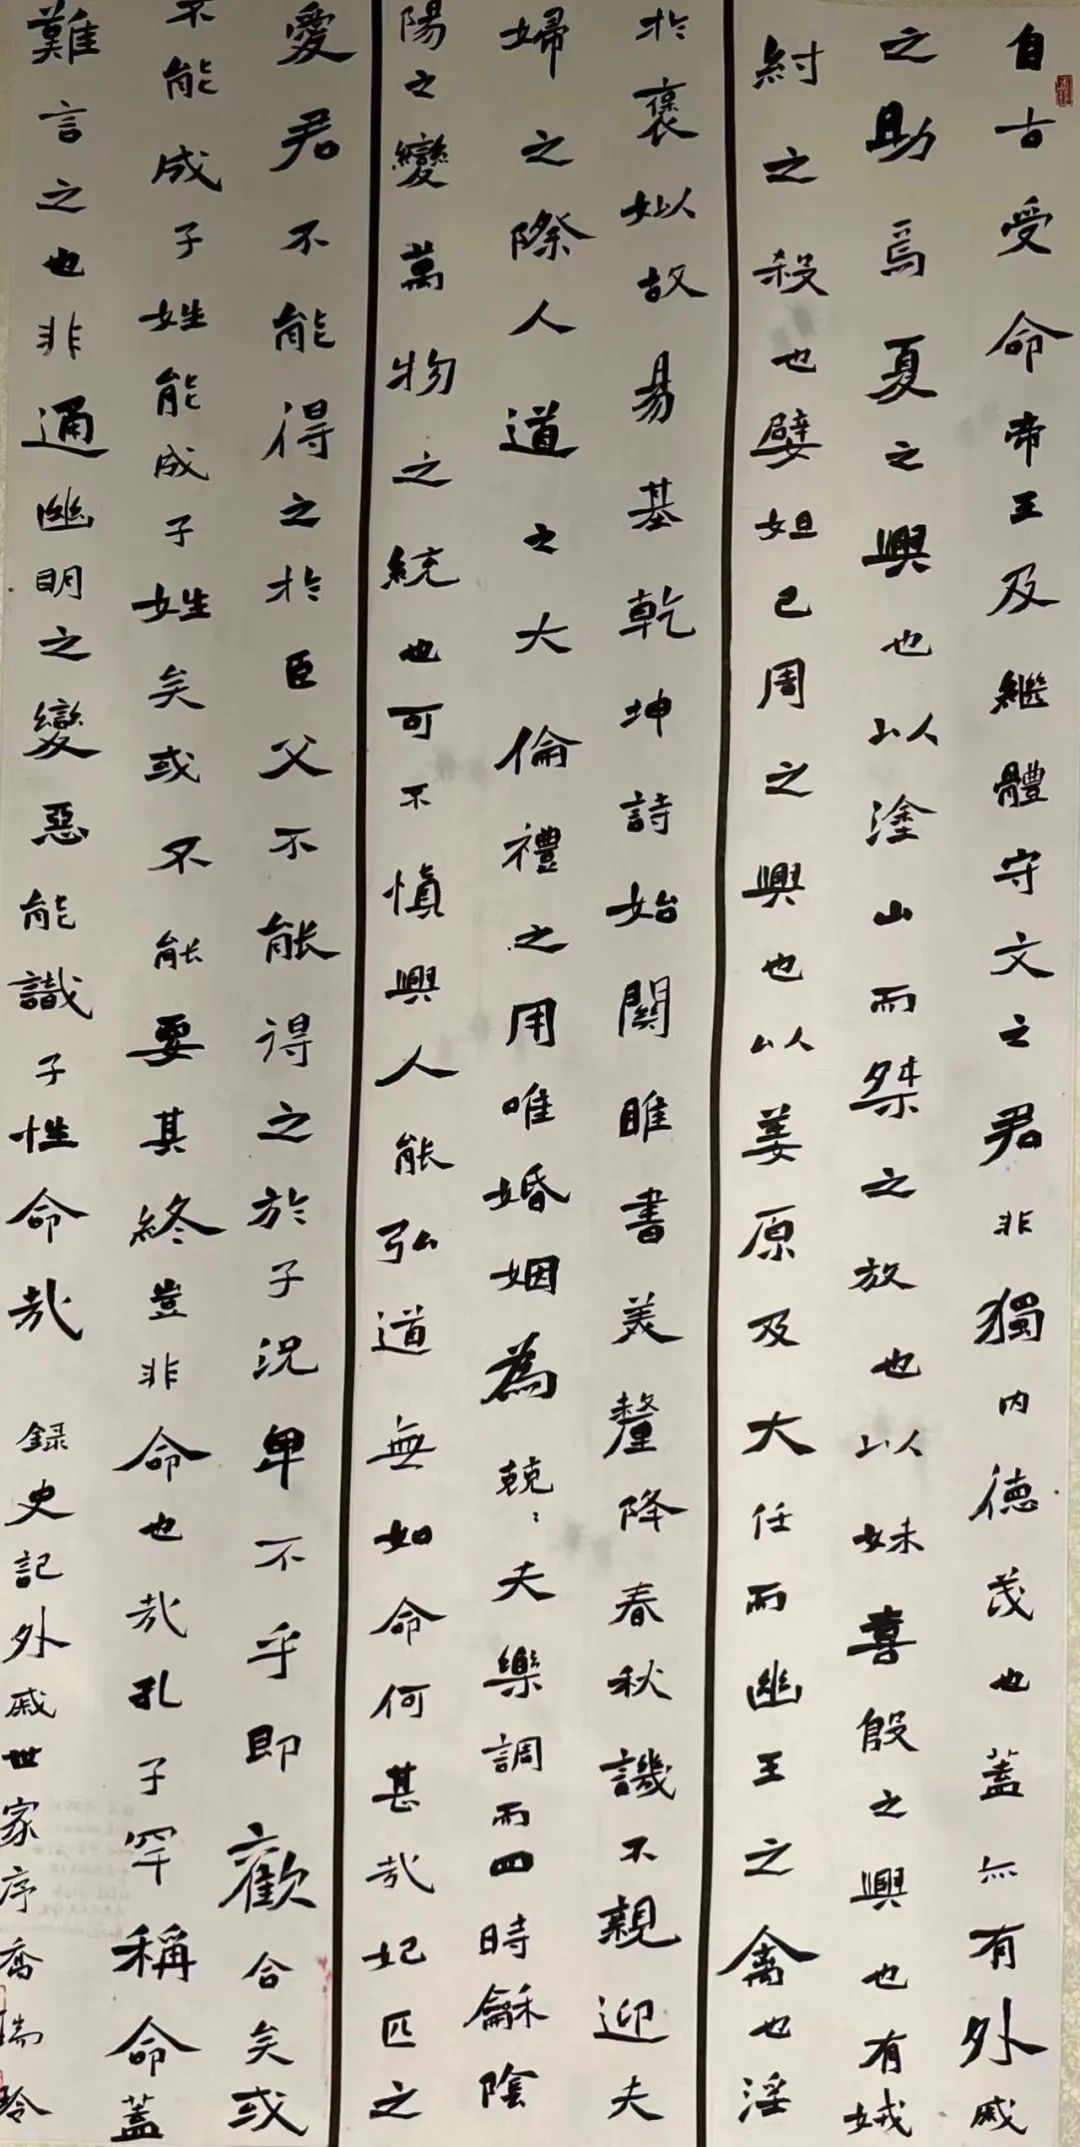 自古受命帝王及繼體守文之君非獨内德茂也蓋亦有外戚
之助焉夏之興也以塗山而桀之放也以妹喜殷之興也有娀
紂之殺也嬖妲己周之興也以姜原及大任而幽王之禽也淫
於褒姒故易基乾坤詩始關雎書美釐降春秋譏不親迎夫
婦之際人道之大倫禮之用唯婚姻為兢〻夫樂調而四時龢陰
陽之變萬物之統也可不慎興人能弘道無如命何甚哉妃匹之
愛君不能得之於臣父不能得之於子況卑不乎即歡合矣或
不能成子姓能成子姓矣或不能要其終豈非命也哉孔子罕稱命蓋
難言之也非通幽明之變惡能識乎性命哉 録史記外戚世家序喬瑞玲